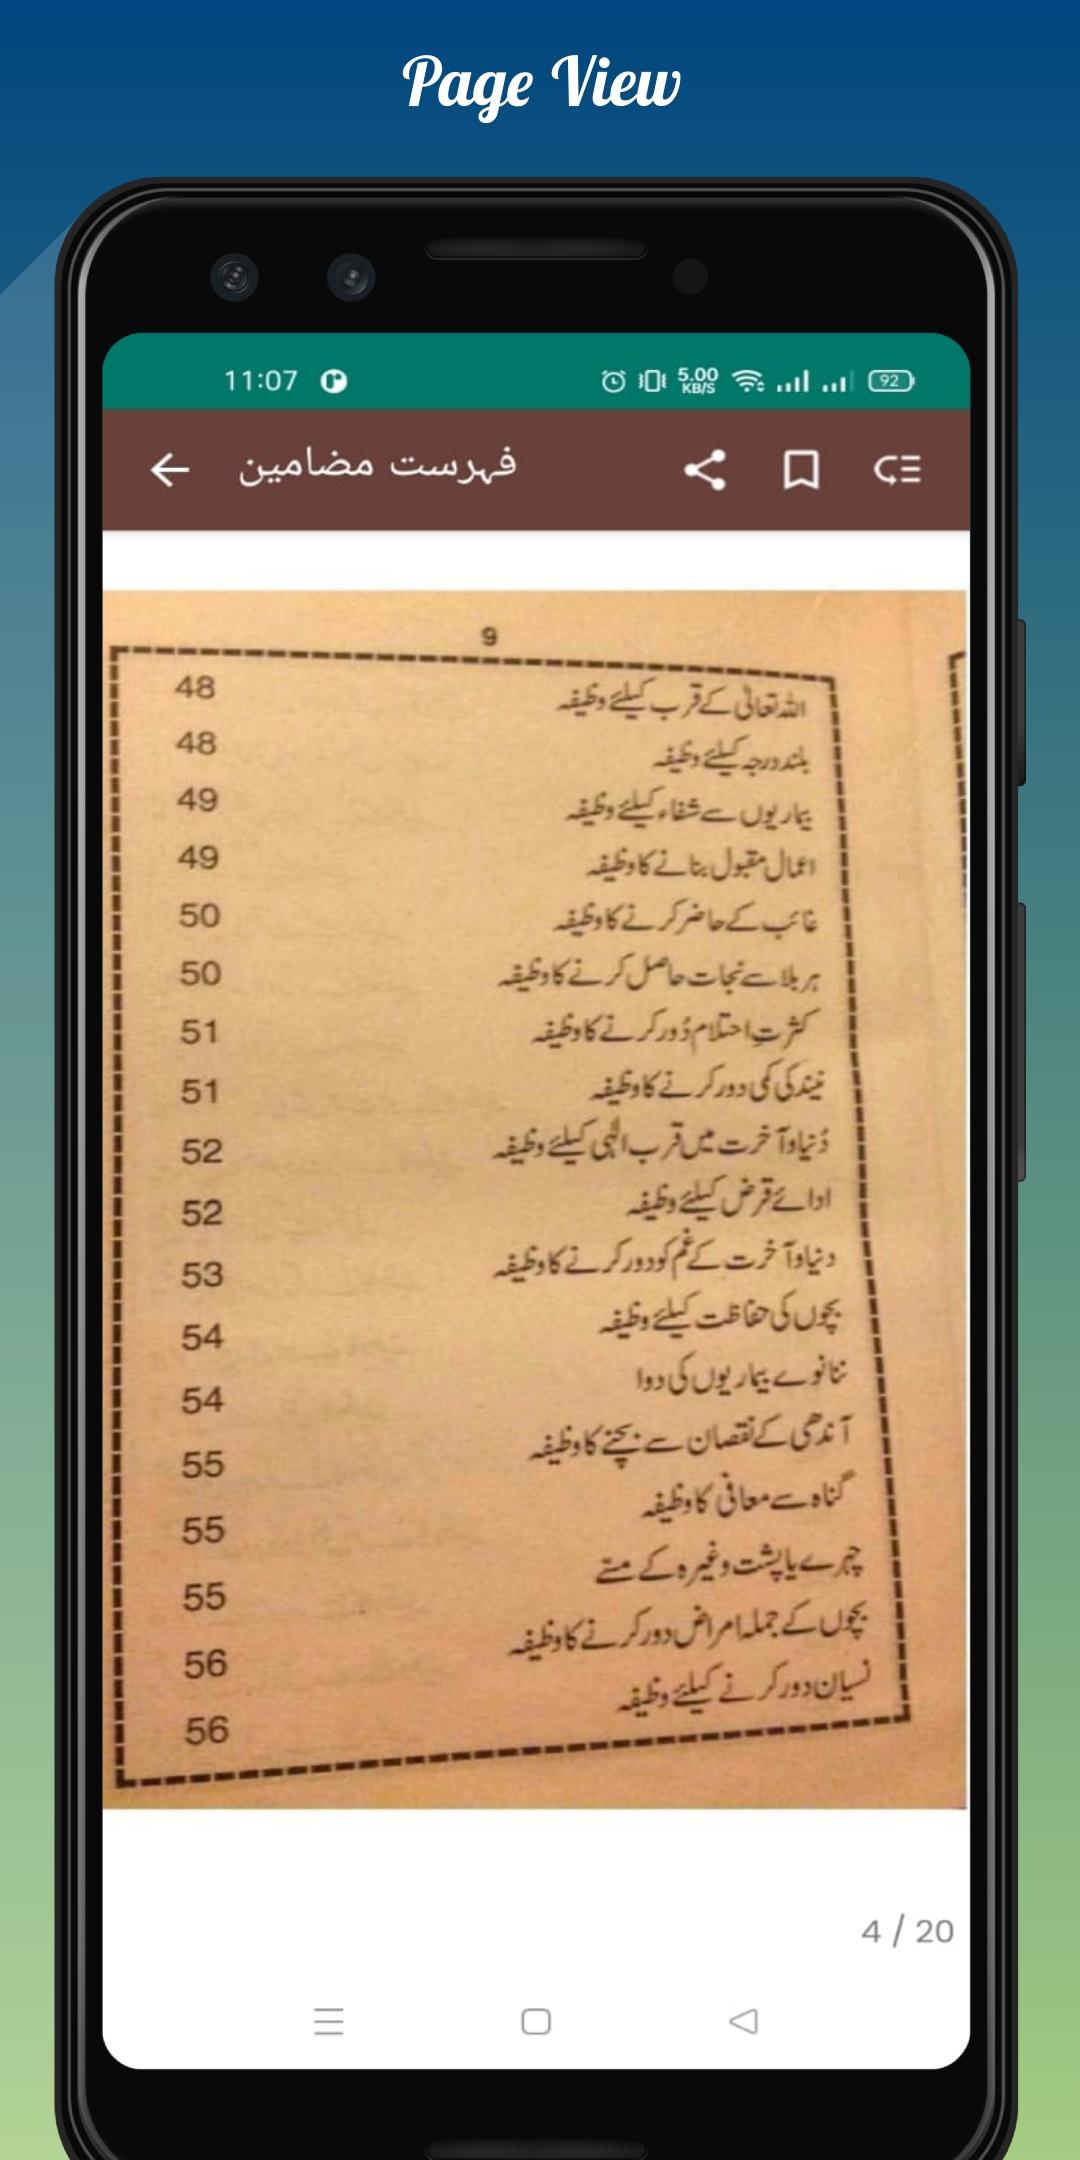 Page View
11:07
5.00
KB/S
92
فہرست مضامین
9
اللہ تعالیٰ کے قرب کیلئے وظیفہ 48
بلند درجہ کیلئے وظیفہ 48
بیماریوں سے شفاء کیلئے وظیفہ 49
اعمال مقبول بنانے کا وظیفہ 49
غائب کے حاضر کرنے کا وظیفہ 50
ہر بلا سے نجات حاصل کرنے کا وظیفہ 50
کثرتِ احتلام دُور کرنے کا وظیفہ 51
نیند کی کمی دور کرنے کا وظیفہ 51
دُنیا و آخرت میں قرب الٰہی کیلئے وظیفہ 52
ادائے قرض کیلئے وظیفہ 52
دنیا و آخرت کے غم کو دور کرنے کا وظیفہ 53
بچوں کی حفاظت کیلئے وظیفہ 54
ننانوے بیماریوں کی دوا 54
آندھی کے نقصان سے بچنے کا وظیفہ 55
گناہ سے معافی کا وظیفہ 55
چہرے یا پشت وغیرہ کے مسّے 55
بچوں کے جملہ امراض دور کرنے کا وظیفہ 56
نسیان دور کرنے کیلئے وظیفہ 56
4 / 20